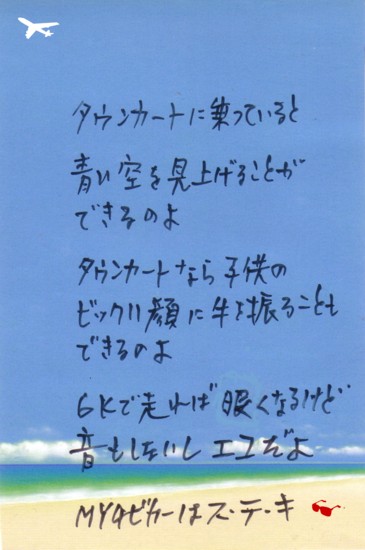 タウンカートに乗っていると
青い空を見上げることが
できるのよ
タウンカートなら子供の
ビックリ顔に手を振ることも
できるのよ
6Kで走れば眠くなるけど
音もしないし エコだよ
MY4ビカーはス・テ・キ